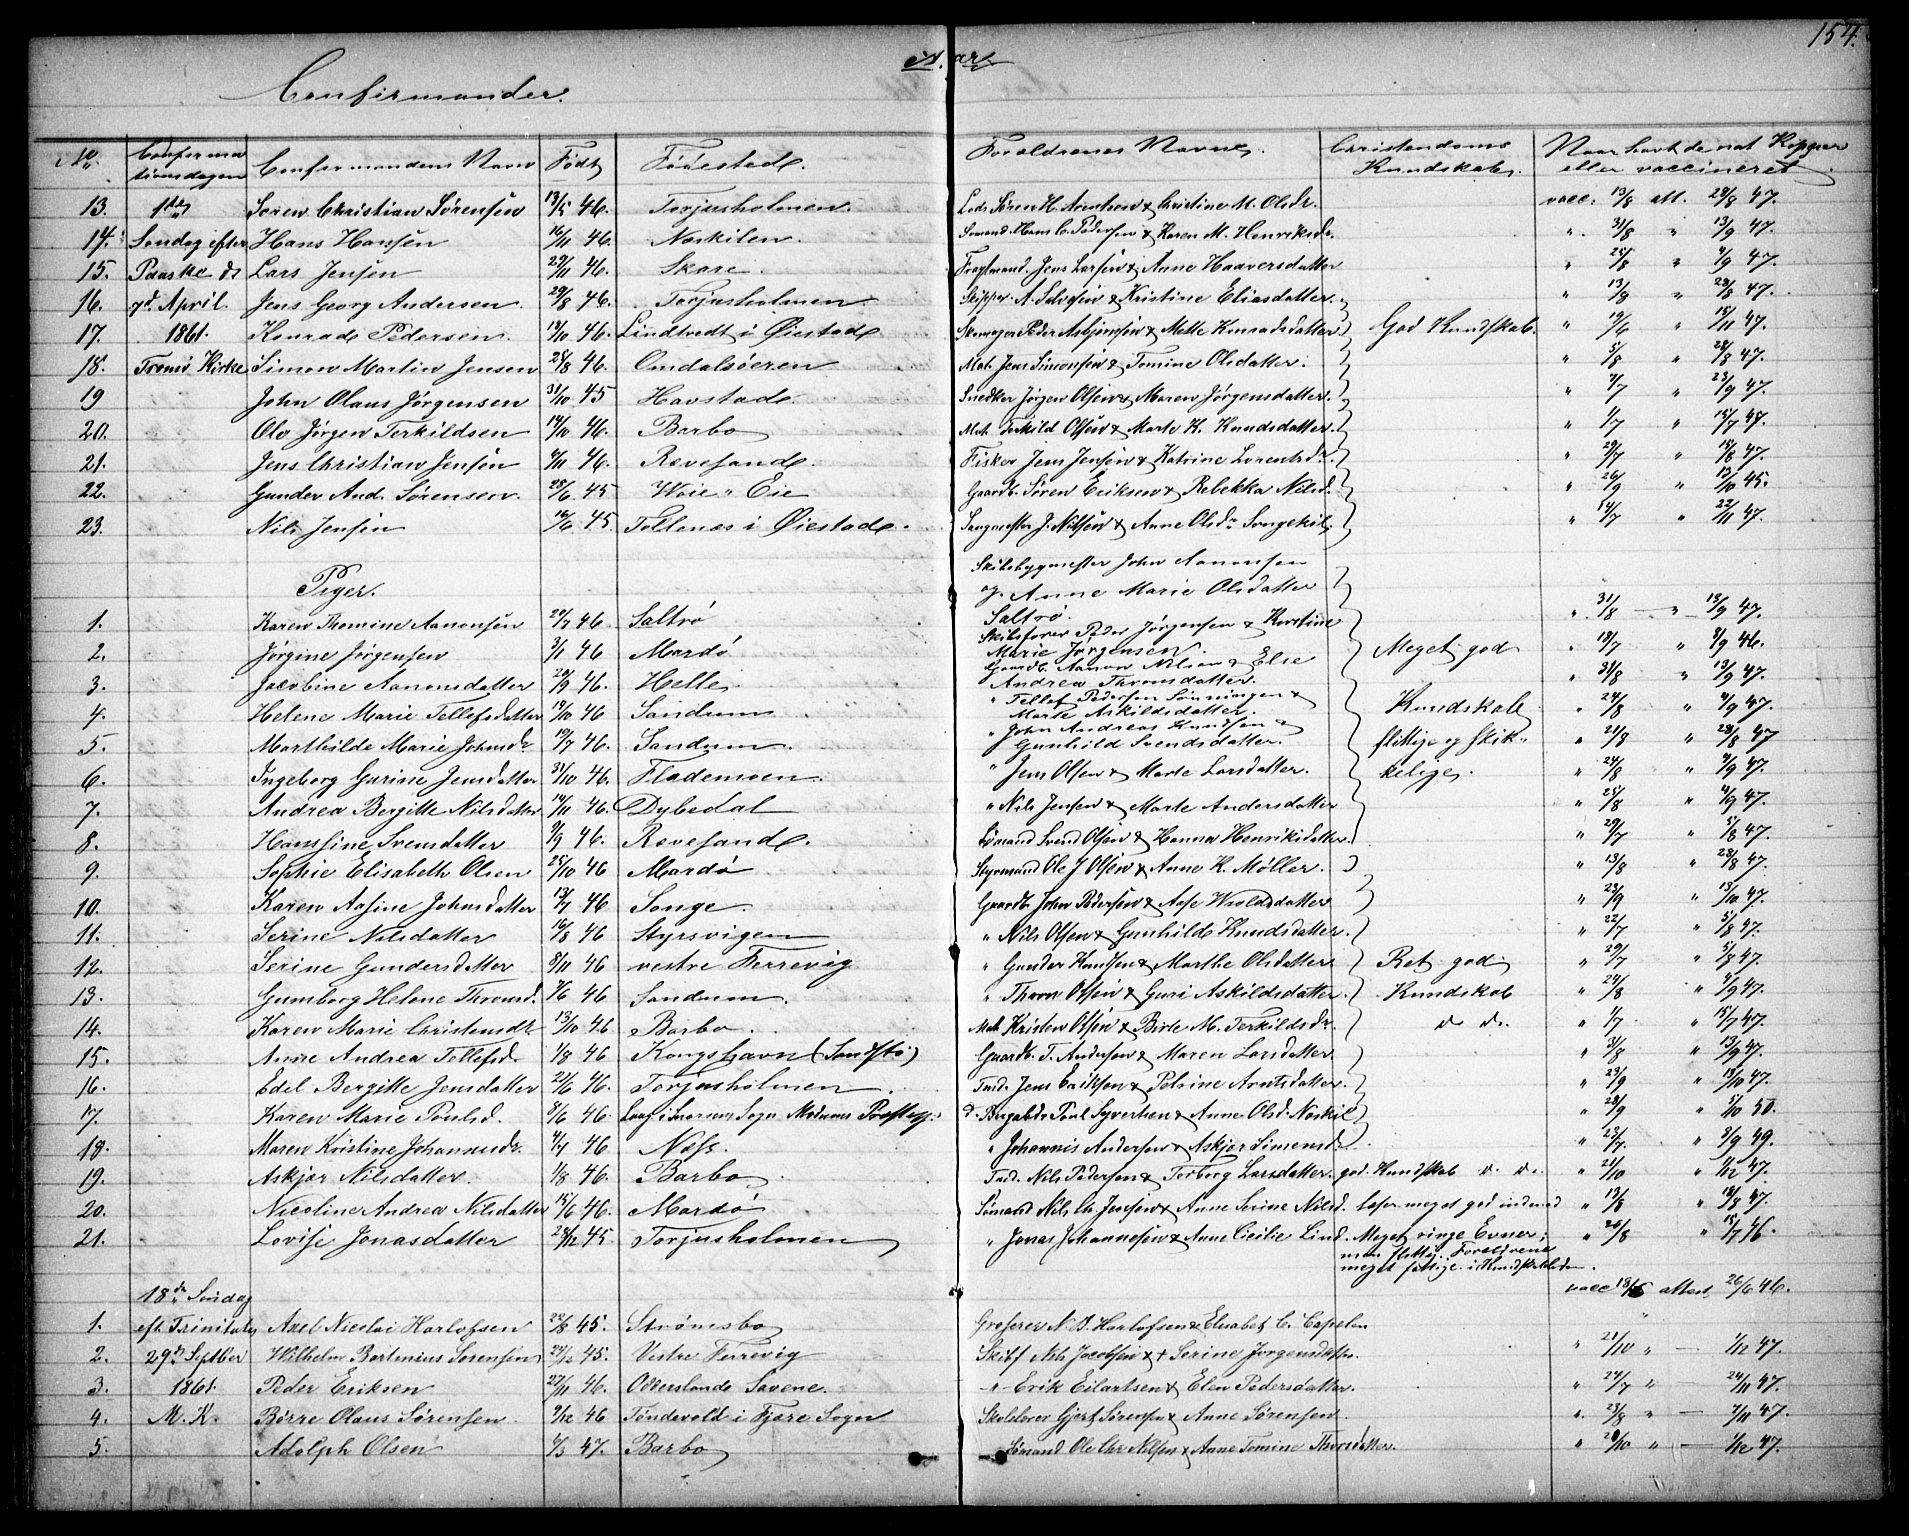 154.
Aar
Confirmander.
No. Confirmationsdagen Confirmandens Navn Født Fødested. Forældrenes Navne. Christendoms Kundskab. Naar havt de nat. Kopper eller vaccineret.
13. 1ste Søren Christian Sørensen 13/5 46. Torjusholmen. Christine M. Olsdr. vacc. 13/8 att. 28/8 47.
14. Søndag efter Hans Hansen 16/11 46. Neskilen. Sømand. Hans C. Pedersen & Karen M. Henriksdr. " 31/8 " 13/9 47.
15. Paaske d. Lars Jensen 29/11 46. Skare. Fragtmand. Jens Larsen & Anne Haaversdatter " 25/8 " 4/9 47.
16. 7d. April. Jens Georg Andersen. 29/8 46. Torjusholmen Skipper A. Salvesen & Kristine Eliasdatter. " 13/8 " 28/8 47.
17. 1861. Konrad Pedersen. 13/10 46. Lindtvedt i Øiestad Skomager Peder Asbjønsen & Mette Konradsdatter. God Kundskab. " 19/6 " 15/11 47.
18. Tromø Kirke Simon Martin Jensen 28/8 46. Omdalsøeren Mat. Jens Simonsen & Tomine Olsdatter. " 5/8 " 28/8 47.
19 John Olaus Jørgensen 31/10 45 Havstad. Snedker Jørgen Olsen & Maren Jørgensdatter. " 7/7 " 23/9 47.
20. Ole Jørgen Terkildsen 14/10 46. Barbo Mat. Terkild Olsen & Marte K. Knudsdatter. " 1/7 " 15/7 47.
21. Jens Christian Jensen 4/11 46. Revesand. Fisker Jens Jensen & Katrine Lorentsdr. " 29/7 " 18/8 47.
22. Gunder And. Sørensen. 28/6 45 Woie " Eie Gaardb. Søren Eriksen & Rebekka Nilsd. " 26/9 " 13/10 45.
23. Nils Jensen 16/6 45. Tellenes i Øiestad. J. Nilsen & Anne Olsdr. Songekil. " 14/7 " 22/11 47.
Piger.
Skibsbygmester John Aanonsen
og Anne Marie Olsdatter
1. Karen Thomine Aanonsen 29/7 46 Saltrø Saltrø. " 31/8 " 13/9 47.
2. Jørgine Jørgensen 3/1 46 Mardø Skibsfører Peder Jørgensen & Kirstine Marie Jørgensen. Meget god " 18/7 " 8/9 46.
3. Jacobine Aanonsdatter 20/9 46. Helle. Gaardb. Aanon Nilsen & Else Andrea Thronsdatter. " 31/8 " 13/9 47.
4. Helene Marie Tellefsdatter 19/10 46 Sandum " Tellef Pedersen & Marte Askildsdatter. Kundskab " 24/8 " 4/9 47.
5. Marthilde Marie Johnsdr 19/7 46. Sandum. " John Andreas Knudsen & Gunhild Svendsdatter. flittige og skik- " 21/8 " 28/8 47
6. Ingeborg Gurine Jensdatter 31/10 46. Flademoen. " Jens Olsen & Marte Larsdatter. kelige. " 24/8 " 4/9 47.
7. Andrea Bergitte Nilsdatter 14/11 46. Dybedal " Nils Jensen & Marte Andersdatter " 25/8 " 4/9 47.
8. Hansine Svensdatter 9/9 46. Revesand. Sømand Svend Olsen & Hanna Henriksdatter. " 29/7 " 5/8 47.
9. Sophie Elisabeth Olsen 25/10 46 Mardø Styrmand Ole J Olsen & Anne K. Møller. " 13/8 " 28/8 47.
10. Karen Aasine Johnsdatter 13/7 46 Songe. Gaardb. John Pedersen & Aase " 23/9 " 13/10 47.
11. Serine Nilsdatter 16/8 46 Styrsvigen " Nils Olsen & Gunhilde Knudsdatter. " 22/7 " 5/8 47.
12. Serine Gundersdatter 8/11 46 vestre Ferrevig " Gunder Knudsen & Marthe Olsdatter Ret god " 29/7 " 5/8 47.
13. Gumborg Helene Thronsd. 7/6 46 Sandum. " Thron Olsen & Guri Askildsdatter. Kundskab " 24/8 " 4/9 47.
14. Karen Marie Christensdr 13/10 46 Barbo. Mat. Kristen Olsen & Birte M. Terkildsdr. do do. " 1/7 " 15/7 47.
15. Anne Andrea Tellefsd. 1/8 46 Kongshavn (Sandstø) Gaardb. T. Andersen & Maren Larsdatter " 31/8 " 13/9 47.
16. Edel Bergitte Jensdatter 21/6 46. Torjusholmen. Jens Eriksen & Petrine Arntsdatter. " 23/9 " 13/10 47.
17. Karen Marie Poulsd. 8/6 46 Sogn Modums Præstegj. Poul Syvertsen & Anne Olsd. Neskil " 28/9 " 5/10 50.
18. Maren Kristine Johannesdr. 4/4 46 Næs. " Johannis Andersen & Askjær Simonsd. " 23/7 " 3/9 49.
19. Askjær Nilsdatter. 1/8 46. Barbo. Nils Pedersen & Torborg Larsdatter. god Kundskab do do. " 21/10 " 1/12 47.
20. Nicoline Andrea Nilsdatter 15/6 46. Mardø Sømand Nils Chr. Jensen & Anne Serine Nilsd. læser meget god indenad " 13/8 " 18/8 47.
21. Lovise Jonasdatter 23/12 45 Torjusholmen " Jonas Johannesen & Anne Cicilie Lind. Meget ringe Evner; " 26/8 " 15/7 46.
men flittig. Forældrene
meget fattige.
18de Søndag vacc 18/6 attest. 26/6 46.
1. eft. Trinitatis Axel Nicolai Herlofsen 22/8 45. Strømsbo Grosserer N. B. Herlofsen & Elisabet C. Capelen
2. 29de Septber Wilhelm Bertinius Sørensen 24/12 45. Vestre Ferrevig Skibf Nils Jacobsen & + Serine Jørgensdatter. " 21/10 " 1/12 47.
3. 1861. Peder Eriksen 27/11 46. Odderslands Savene. " Erik Eilartsen & Elen Pedersdatter. " 24/7 " 24/11 47.
4. M. K. Børre Olaus Sørensen 9/12 46 Tøndevold i Fjære Sogn Skolelærer Gjert Sørensen & Anne Sørensen. " 23/8 " 7/11 47.
5. Adolph Olsen 6/3 47. Barbo Sømand Ole Chr Nilsen & Anne Tomine Thorsdatter. " 20/10 " 1/12 47.